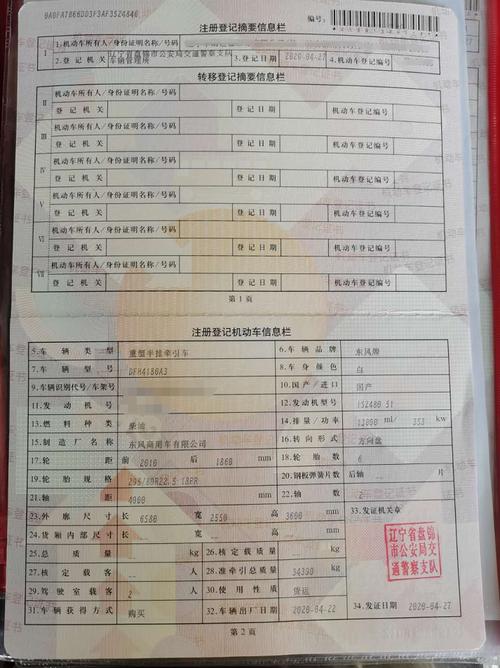 注册登记摘要信息栏
编号:
1.机动车所有人/身份证明名称/号码
2.登 记 机 关 辽宁省盘锦市公安局交通警察支队车辆管理所 3.登记日期 2020-04-27 4.机动车登记编号
转移登记摘要信息栏
II 机动车所有人/身份证明名称/号码
登 记 机 关 登记日期 机动车登记编号
III 机动车所有人/身份证明名称/号码
登 记 机 关 登记日期 机动车登记编号
IV 机动车所有人/身份证明名称/号码
登 记 机 关 登记日期 机动车登记编号
V 机动车所有人/身份证明名称/号码
登 记 机 关 登记日期 机动车登记编号
VI 机动车所有人/身份证明名称/号码
登 记 机 关 登记日期 机动车登记编号
VII 机动车所有人/身份证明名称/号码
登 记 机 关 登记日期 机动车登记编号
第 1 页
注册登记机动车信息栏
5.车 辆 类 型 重型半挂牵引车 6.车 辆 品 牌 东风牌
7.车 辆 型 号 DFH4180A3 8.车 身 颜 色 白
9.车辆识别代号/车架号 10.国 产 / 进 口 国产
11.发 动 机 号 12.发动机型号
13.燃 料 种 类 柴油 14.排 量 / 功 率 ml/ kw
15.制 造 厂 名 称 东风商用车有限公司 16.转 向 形 式 方向盘
17.轮 距 前 2010 后 1860 mm 18.轮 胎 数 6
19.轮 胎 规 格 295/80R22.5 18PR 20.钢板弹簧片数 后轴 片
21.轴 距 4000 mm 22.轴 数 2
23.外 廓 尺 寸 长 6580 宽 2550 高 3600 mm 33.发证机关章
24.货厢内部尺寸 长 宽 高 mm
25.总 质 量 kg 26.核 定 载 质 量 kg
27.核 定 载 客 人 28.准牵引总质量 kg
29.驾 驶 室 载 客 2 人 30.使 用 性 质 货运
31.车辆获得方式 购买 32.车辆出厂日期 2020-04-22 34.发证日期 2020-04-27
辽宁省盘锦
市公安局交
通警察支队
第 2 页